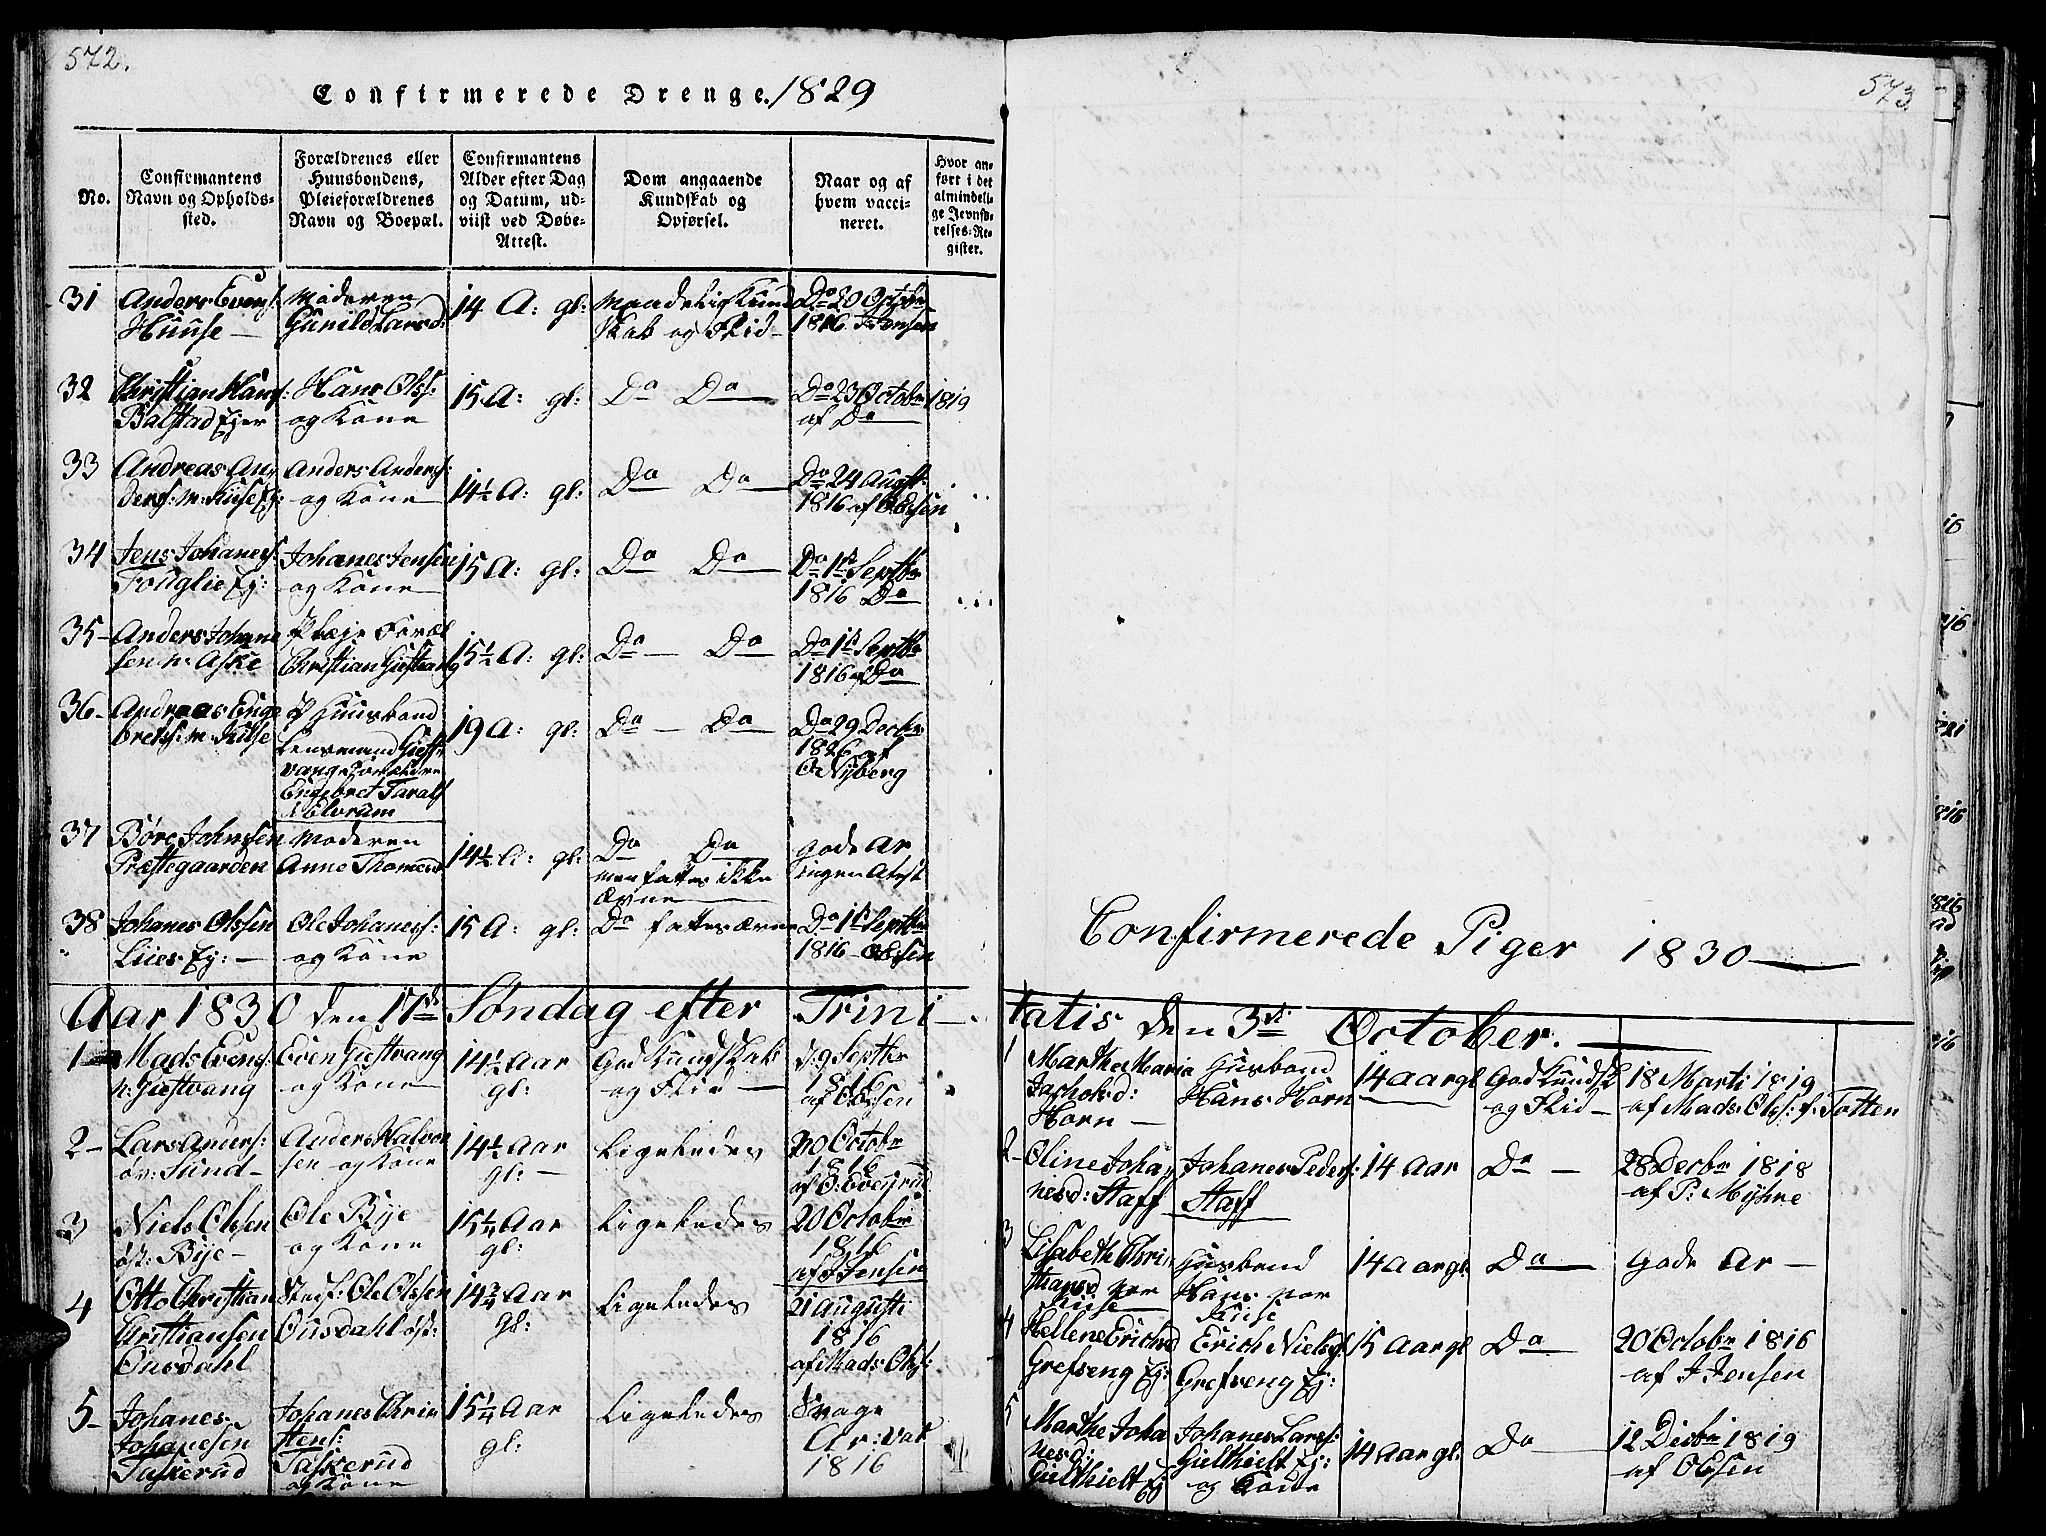 572.
Confirmerede Drenge. 1829
No.
Confirmantens
Navn og Opholds-
sted.
Forældrenes eller
Huusbondens,
Pleieforældrenes
Navn og Boepæl.
Confirmantens
Alder efter Dag
og Datum, ud-
viist ved Døbe-
Attest.
Dom angaaende
Kundskab og
Opførsel.
Naar og af
hvem vacci-
neret.
Hvor an-
ført i det
almindeli-
ge Jevnfø-
relses-Re-
gister.
31 Anders Evens:
Huuse —
Moderen
Gunild Larsd:
14 A: gl:
Maadelig Kund
skab og Flid —
Do 20 Octobr
1816 J Jensen
32 Christian Hans:
Balstad Ejer
Hans Ols:
og Kone
15 A: gl:
Do Do
Do 23 Octobr 1819
af Do
33 Andreas An
ders: n: Kiise Ej:
Anders Anders:
og Kone
14½ A: gl:
Do Do
Do 24 Augst:
1816 af Olsen
34 Jens Johanes:
Fouglie Ej:
Johanes Jensen
og Kone
15 A: gl:
Do Do
Do 1st Septbr
1816 Do
35 - Anders Johane
sen n: Aske
Pleje Foræl
Christian Giestvang
15½ A: gl:
Do — Do
Do 1st Septbr
1816 af Do
36 - Andreas Enge
brets: n: Kiise
P Huusbond
Lensmand Giest
vang Forældre
Engebret Taralds
Elvrum
19 A: gl:
Do — Do
Do 29 Decbr
1826 af
O Nyberg
37 Børe Johnsen
Præstegaarden
Moderen
Anne Thomesd
14½ A: gl:
Do Do
men fattes ikke
Ævne
gode Ar
ingen Atest
38 Johanes Olsen
Lies Ej: —
Ole Johaness:
og Kone
15 A: gl:
Do fattes ævne
Do 1st Septbr
1816 - Olsen
Aar 1830 den 17de Søndag efter Trini—
1 - Mads Evens:
n: Giestvang
Even Giestvang
og Kone
14½ Aar
gl:
God Kundskab
og Flid —
d: 9 Septbr
1816
af Olsen
2 - Lars Anders:
øv: Sund —
Anders Halvor
sen og Kone
14½ Aar
gl: —
Ligeledes
20 Octobr
1816
af O: Evensrud
3 Niels Olsen
øst: Bye —
Ole Bye
og Kone
15¼ Aar
gl:
Ligeledes
20 Octobr
1816
af J Jensen
4 Otto Christian
Christiansen
Ousdahl
Stedf: Ole Olsen
Ousdahl øst:
14¾ Aar
gl:
Ligeledes
21 Augusti
1816
af Mads Ols:
5 - Johanes
Johanesen
Taskerud
Johanes Chris
tens:
Taskerud
og Kone
15¼ Aar
gl:
Ligeledes
Svage
Ar: vak
1816
573
Confirmerede Piger 1830 —
tatis den 3de October. —
1 Marthe Maria
Jachobsd:
Horn —
Husbond
Hans Horn
14 aar gl
God Kundsk
og Flid —
18 Marti 1819
af Mads Ols: f: Totten
2 - Oline Joha
nesd: Staff
Johanes Peders:
Staff
14 Aar
Do —
28 Decbr 1818
af P: Myhre
3 Lisabeth Chri
stiansd
Kiise
Husbond
Hans
Kiise
14 aar gl
Do —
Gode Ar —
4 Hellene Erichsd
Grefseng Ej:
Erich Niels:
Grefseng Ej:
15 aar gl
Do
20 Octobr 1816
af J Jensen
5 Marthe Joha
nesd:
Gielthielt Ej
Johanes Lars:
Gielthielt Ej:
og Kone
14 aar gl:
Do
12 Decbr 1819
af Olsen